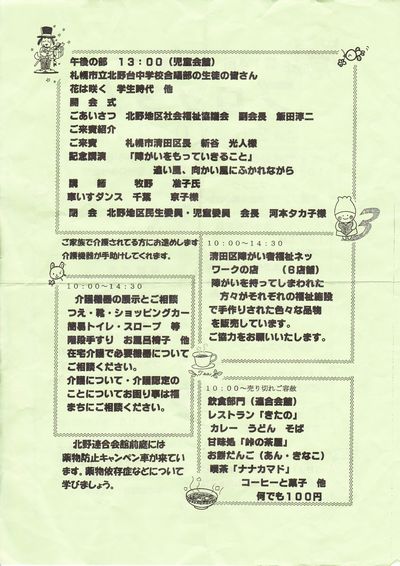 午後の部 13:00（児童会館）
札幌市立北野台中学校合唱部の生徒の皆さん
花は咲く 学生時代 他
開 会 式
ごあいさつ 北野地区社会福祉協議会 副会長 飯田淳二
ご来賓紹介
ご来賓 札幌市清田区長 新谷 光人様
記念講演 「障がいをもっていきること」
追い風、向かい風にふかれながら
講 師 牧野 准子氏
車いすダンス 千葉 京子様
閉 会 北野地区民生委員・児童委員 会長 河本タカ子様
ご家族で介護されてる方にお進めします
介護機器が手助けしてくれます。
10:00～14:30
介護機器の展示とご相談
つえ・靴・ショッピングカー
簡易トイレ・スロープ 等
階段手すり お風呂椅子 他
在宅介護で必要機器について
ご相談ください。
介護について・介護認定の
ことについてお困り事は福
まちにご相談ください。
北野連合会館前庭には
薬物防止キャンペン車が来てい
ます。薬物依存症などについて
学びましょう。
10:00～14:30
清田区障がい者福祉ネッ
ワークの店 （6店舗）
障がいを持ってしまわれた
方々がそれぞれの福祉施設
で手作りされた色々な品物
を販売しています。
ご協力をお願いいたします。
10:00～売り切れご容赦
飲食部門（連合会館）
レストラン「きたの」
カレー うどん そば
甘味処「峠の茶屋」
お餅だんご（あん・きなこ）
喫茶「ナナカマド」
コーヒーと菓子 他
何でも100円